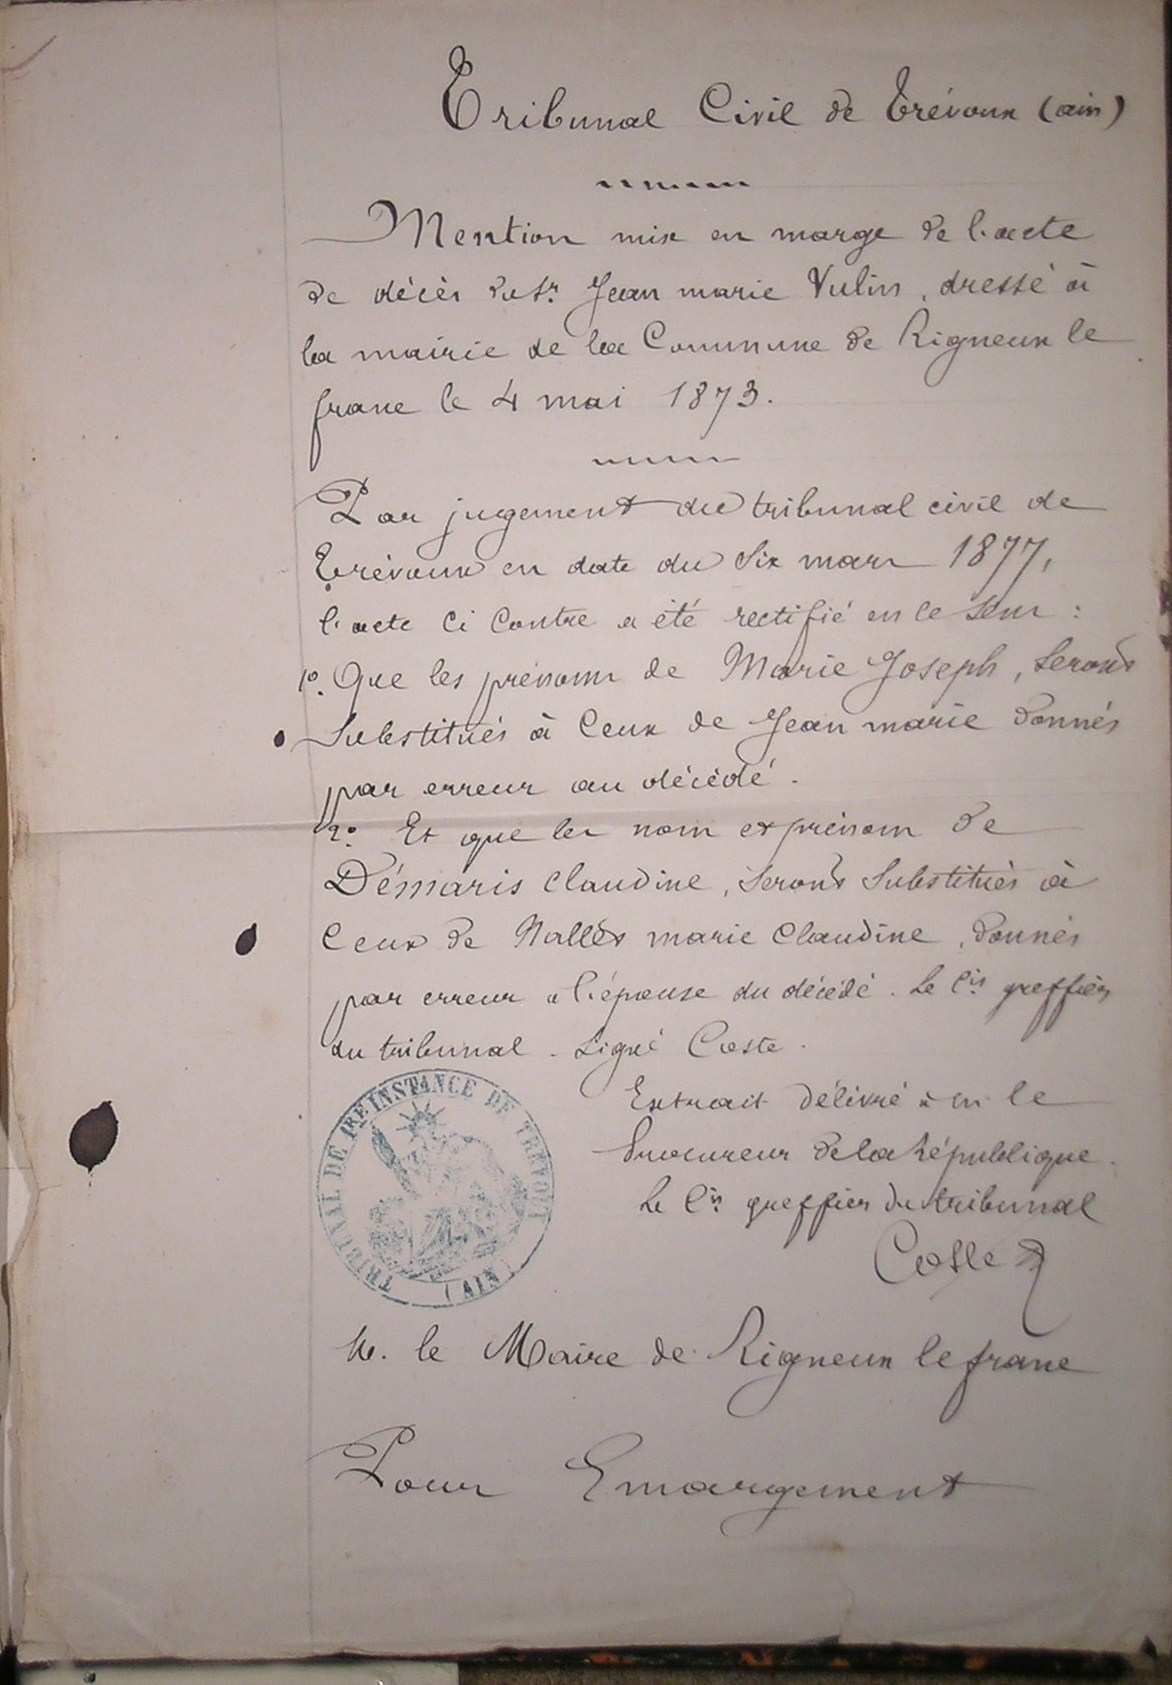 Tribunal Civil de Trévoux (ain)
Mention mise en marge de l'acte
de décès du Sr Jean marie Vulin, dressé à
la mairie de la Commune de Rigneux le
franc le 4 mai 1873.
Par jugement du tribunal civil de
Trévoux en date du Six mars 1877,
l'acte ci contre a été rectifié en ce sens :
1º. Que les prénoms de Marie Joseph, Seront
Substitués à Ceux de Jean marie donnés
par erreur au décédé.
2º. Et que les nom et prénom de
Démaris Claudine, Seront Substitués à
Ceux de Nallet marie Claudine, donnés
par erreur a l'épouse du décédé. Le Cis greffier
du tribunal. Signé Coste.
Extrait délivré à m le
Procureur de la République.
Le Cis greffier du tribunal
Coste
TRIBUNAL DE 1RE INSTANCE DE TREVOUX
(AIN)
M. le Maire de Rigneux le franc
Pour Emargement